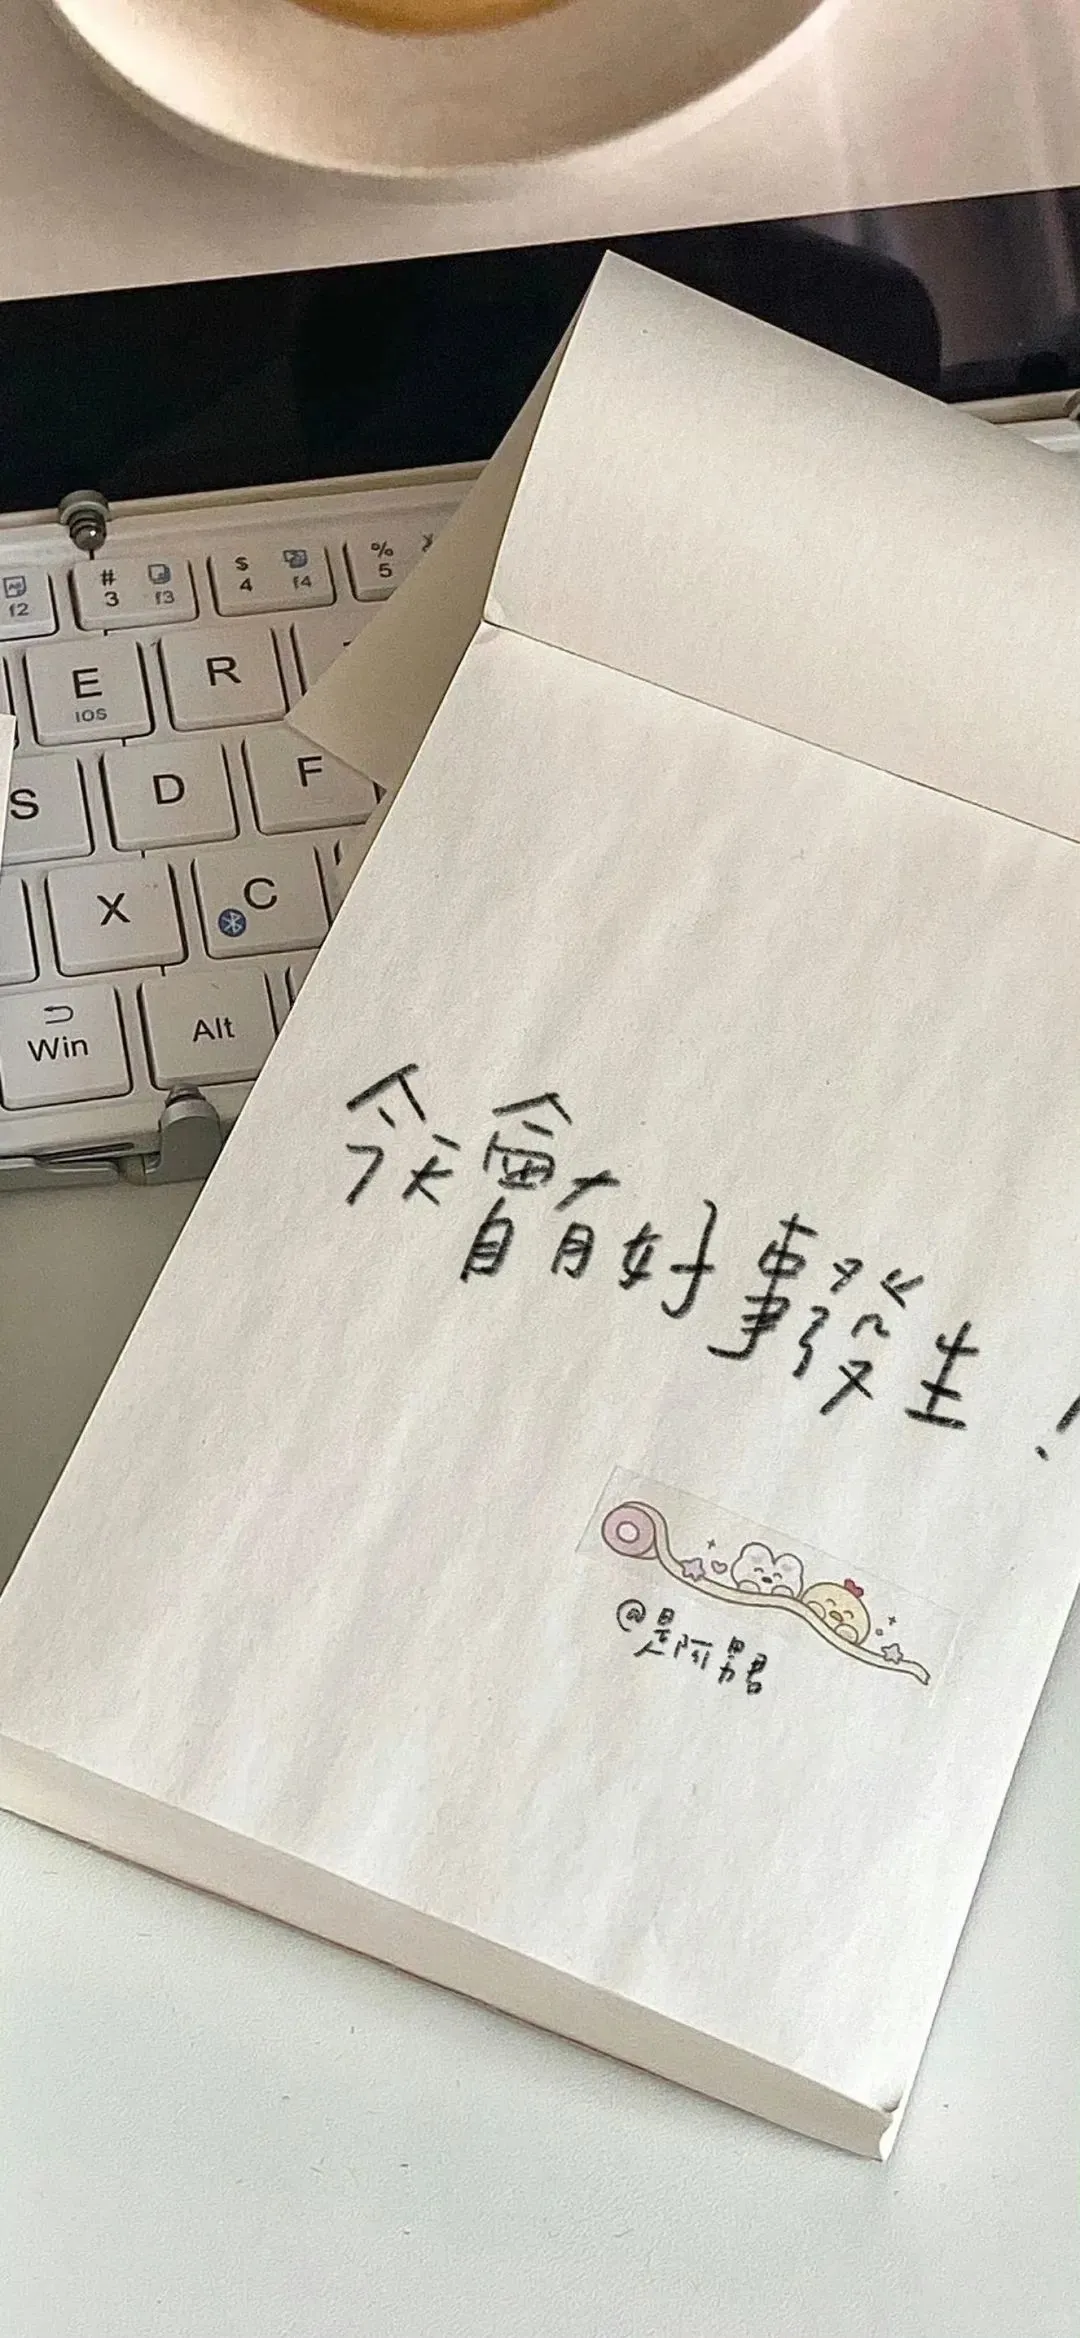 # 3 f3
$ 4 f4
% 5
f2
E IOS
R
S
D
F
X
C
Win
Alt
今天會有好事發生！
@是阿男君